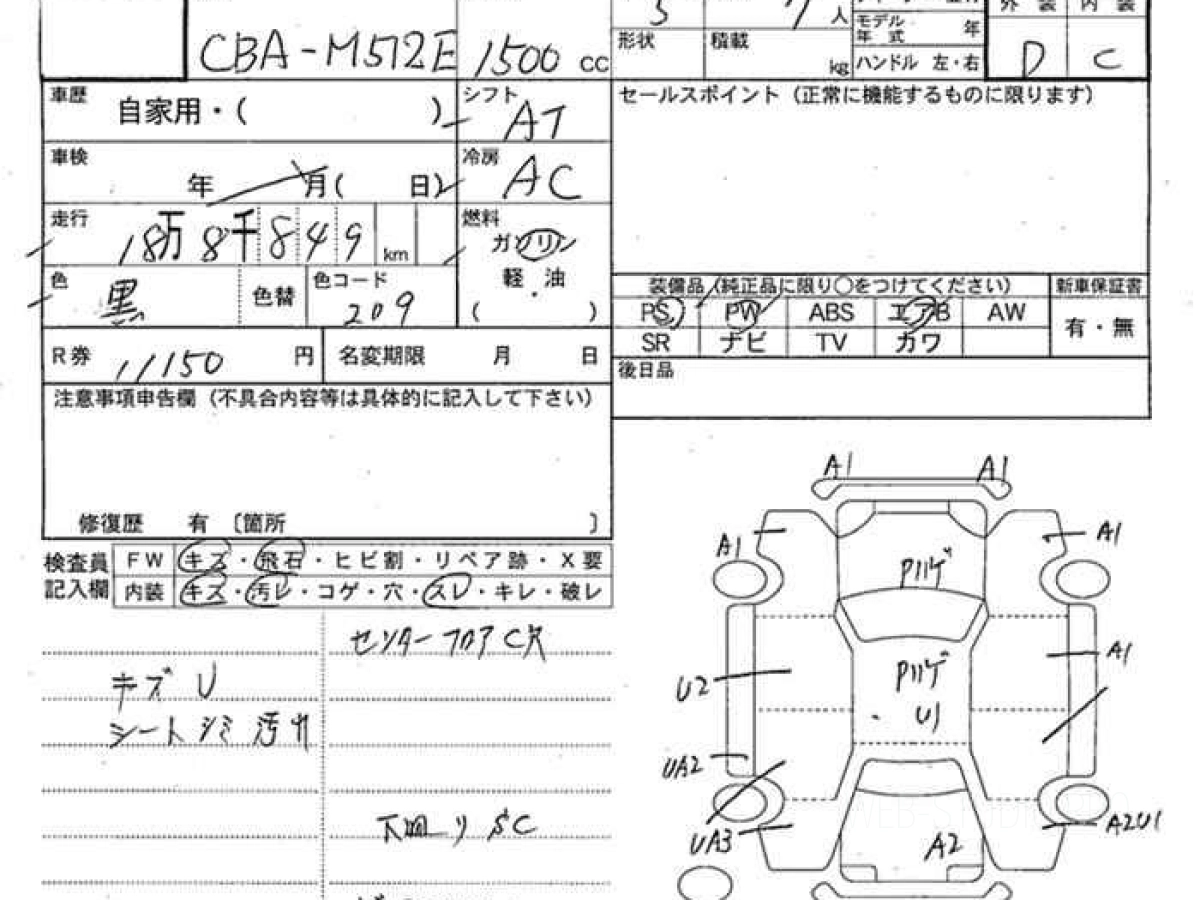 CBA-M512E 1500 cc
5 7 人
形状 積載 kg
モデル年式 年
ハンドル 左・右
外装 内装
D C
車歴 自家用・( )
シフト AT
車検 年 月( 日)
冷房 AC
走行 18万8千849 km
燃料 ガソリン
軽・油
( )
色 黒 色替 色コード 209
R券 11150 円 名変期限 月 日
注意事項申告欄(不具合内容等は具体的に記入して下さい)
修復歴 有 〔箇所 〕
セールスポイント(正常に機能するものに限ります)
装備品(純正品に限り○をつけてください) 新車保証書
PS PW ABS エアB AW 有・無
SR ナビ TV カワ
後日品
検査員記入欄
FW キズ・飛石・ヒビ割・リペア跡・X要
内装 キズ・汚レ・コゲ・穴・スレ・キレ・破レ
センターフロアC穴
キズU
シートシミ汚れ
下回りSC
A1 A1
A1 A1
Pハゲ
A1
U2
Pハゲ
U1
UA2
UA3
A2
A2U1